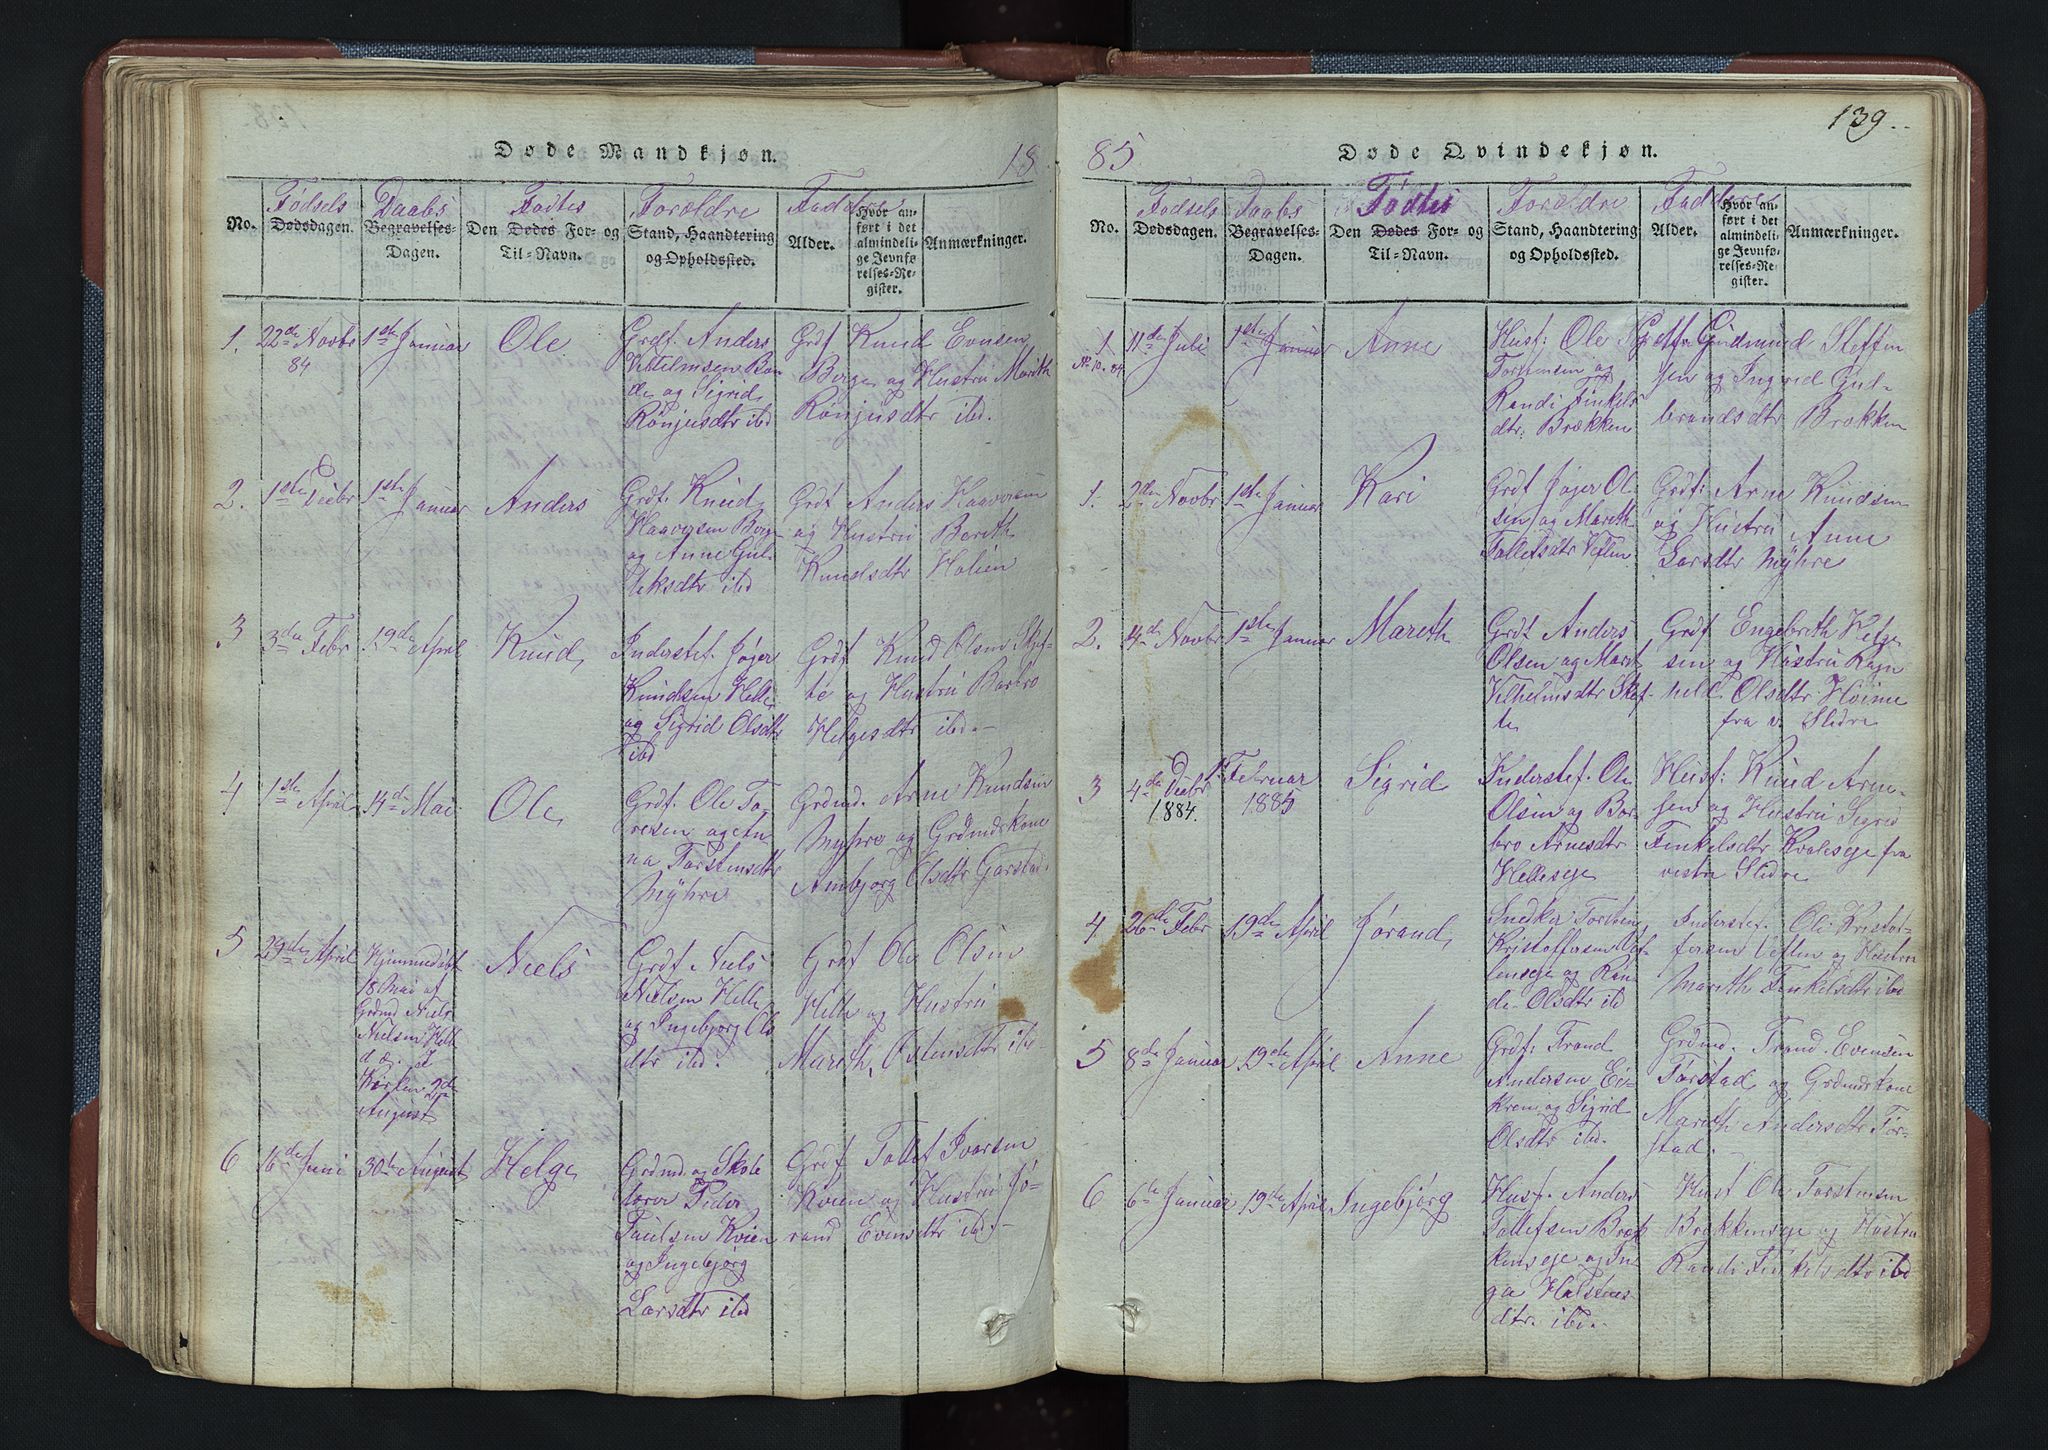 139
Døde Mandkjøn.
18
No.
Fødsels
Dødsdagen.
Daabs
Begravelses-
Dagen.
Fødtes
Den Dødes For- og
Til-Navn.
Forældre
Stand, Haandtering
og Opholdssted.
Faddere
Alder.
Hvor an-
ført i det
almindeli-
ge Jevnfø-
relses-Re-
gister.
Anmærkninger.
1.
22de Novbr
84
1ste Januar
Ole
Grdf. Anders
Vilhelmsen Ban
de og Sigrid
Rönjusdtr ibd
Grdf Knud Evensen
Berge og Hustru Marith
Rönjusdtr ibd.
2.
1ste Decbr
1ste Januar
Anders
Grdf. Knud
Haavorsen Berge
og Anne Gul-
leksdtr ibd
Grdf Anders Haavorsen
og Hustru Berith
Knudsdtr Holien
3
3de Febr
19de April
Knud
Inderstef. Jøger
Knudsen Helle
og Sigrid Olsdtr
ibd
Grdf Knud Olsen Skjef-
te og Hustru Barbro
Helgesdtr ibd.-
4
1ste April
14de Mai
Ole
Grdf. Ole To-
resen og An-
na Torstensdtr
Myhre
Grdmd. Arne Knudsen
Myhre og Grdmdskone
Ambjorg Olsdtr Garstad.
5
29de April
Hjemmedøbt
18 Mai af
Grdmd Niels
Nielsen Helle
d.æ. I
Kirken 2de
August
Niels
Grdf. Niels
Nielsen Helle
og Ingebjørg Ols
dtr ibd.
Grdf Ole Olsen
Helle og Hustru
Marith Østensdtr ibd.
6
16de Juni
30te August
Helge
Grdmd. og Skole
lærer Peder
Paulsen Kvien
og Ingebjørg
Larsdtr ibd
Grdf Tollef Ivarsen
Kvien og Hustru Jø-
rand Evensdtr ibd.-
85
Døde Qvindekjøn.
No.
Fødsels
Dødsdagen.
Daabs
Begravelses-
Dagen.
Fødtes
Den Dødes For- og
Til-Navn.
Forældre
Stand, Haandtering
og Opholdssted.
Faddere
Alder.
Hvor an-
ført i det
almindeli-
ge Jevnfø-
relses-Re-
gister.
Anmærkninger.
1.
No 10. 84
11de Juli
1ste Januar
Anne
Husf: Ole
Torstensen og
Randi Finkels
dtr: Brækken
Grdf Gudmund Steffen
sen og Ingrid Gul-
brandsdtr Brækken
1.
2den Novbr
1ste Januar
Kari
Grdf Jøger Ol
sen og Marith
Tollefsdtr Veflen
Grdf: Arne Knudsen
og Hustru Anne
Larsdtr Myhre
2.
14de Novbr
1ste Januar
Mareth
Grdf Anders
Olsen og Marit
Vilhelmsdtr Skef-
te
Grdf Engebreth Helge
sen og Hustru Ragn
hild Olsdtr Høime
fra v. Slidre
3
4de Decbr
1884.
1. Februar
1885
Sigrid
Inderstef. Ole
Olsen og Bar
bro Arnesdtr
Helleseje
Husf: Knud Arne-
sen og Hustru Sigrid
Finkelsdtr Kvaleseje fra
vestre Slidre
4
26de Febr
19de April
Jørand
Snedker Torsten
Kristoffersen Vef-
lenseje og Ran
di Olsdtr ibd
Inderstef. Ole Kristof-
fersen Veflen og Hustru
Marith Finkelsdtr ibd
5
8de Januar
19de April
Anne
Grdf: Trond
Andersen Ei-
kren og Sigrid
Olsdtr ibd.
Grdmd. Trond Evensen
Førstad og Grdmdskone
Marith Andersdtr Før-
stad.
6
6te Januar
19de April
Ingebjørg
Husf. Anders
Tollefsen Bræk
kenseje og In-
ga Halstens-
dtr. ibd.
Husf Ole Torstensen
Brækkenseje og Hustru
Randi Finkelsdtr ibd